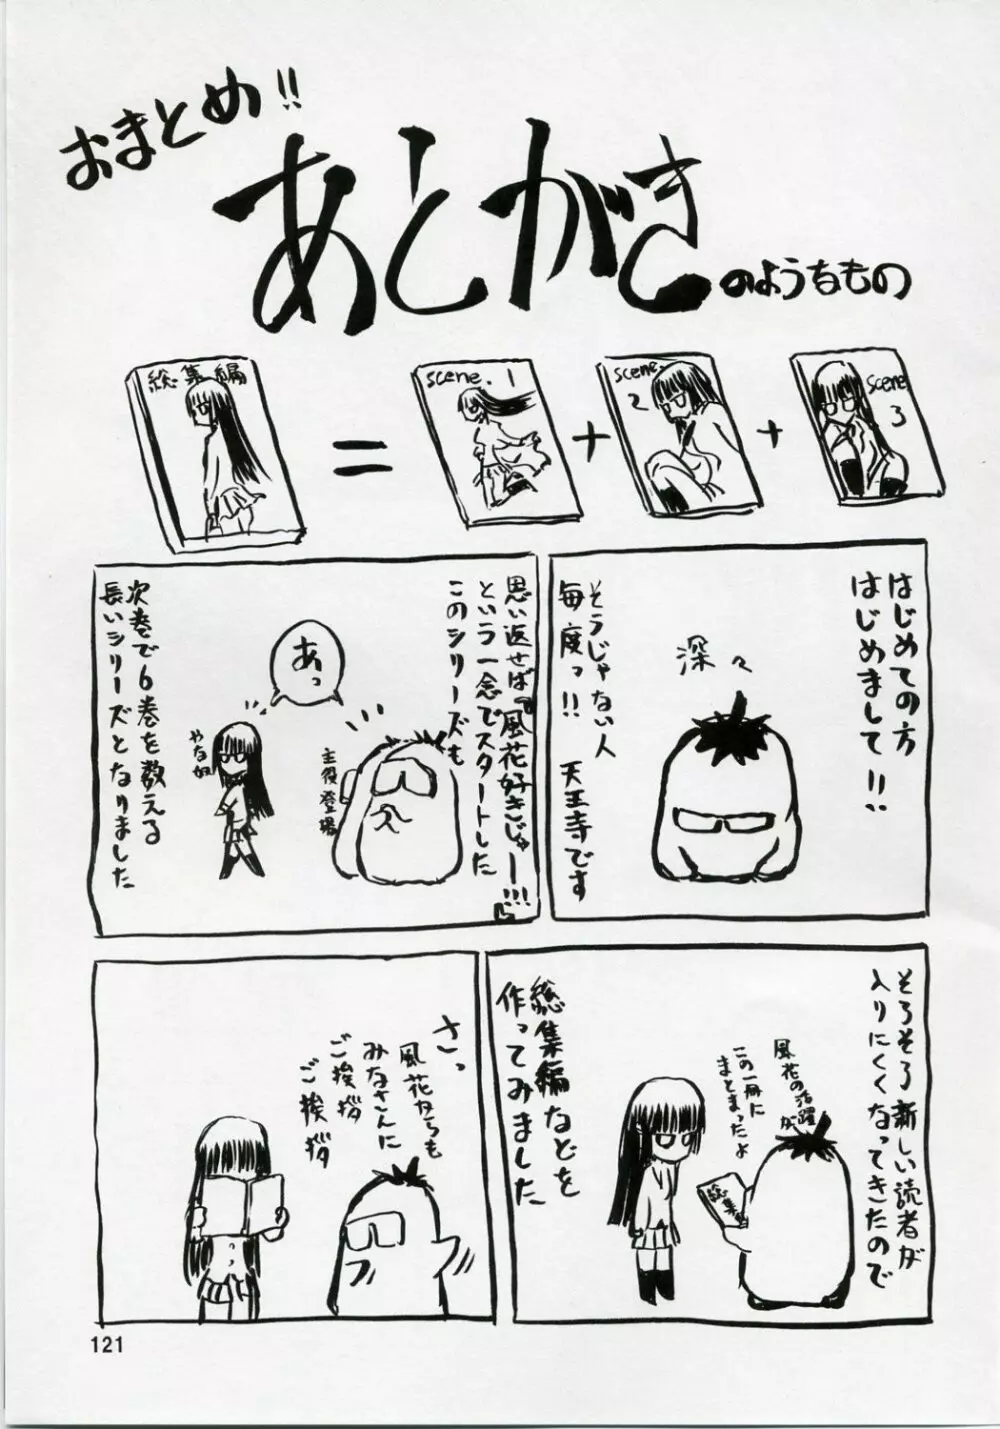 おまとめ!!
あとがき
のようなもの
総集編
=
scene. 1
+
scene. 2
+
scene 3
はじめての方
はじめまして!!
深々
そうじゃない人
毎度っ!!
天王寺です
思い返せば『風花好きじゃー!!!』
という一念でスタートした
このシリーズも
あっ
主役登場
やな奴
次巻で6巻を数える
長いシリーズとなりました
そろそろ新しい読者が
入りにくくなってきたので
風花の活躍が
この一冊に
まとまったよ
総集編
総集編などを
作ってみました
さっ
風花からも
みなさんに
ご挨拶
ご挨拶
121